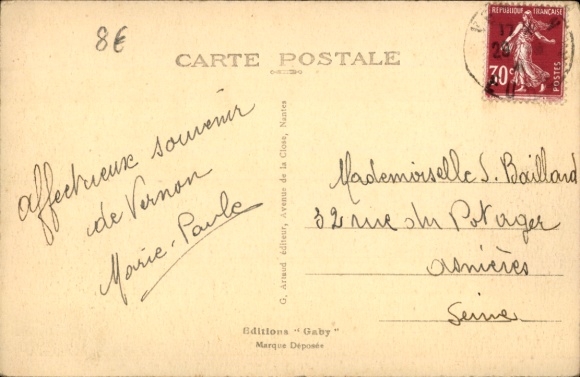 8€
CARTE POSTALE
RÉPUBLIQUE FRANÇAISE
30c
POSTES
17
affectueux souvenir
de Vernon
Marie-Paule
G. Artaud éditeur, Avenue de la Close, Nantes
Mademoiselle S. Baillard
32 rue du Potager
Asnières
Seine
Editions "Gaby"
Marque Déposée